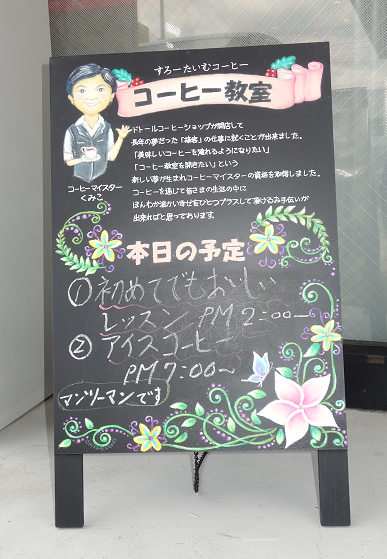 すろーたいむコーヒー
コーヒー教室
ドトールコーヒーショップが開店して
長年の夢だった「接客」の仕事に就くことが出来ました。
「美味しいコーヒーを淹れるようになりたい」
「コーヒー教室を開きたい」という
新しい夢が生まれコーヒーマイスターの資格を取得しました。
コーヒーを通じて皆さまの生活の中に
ほんわか温かい幸せをひとつプラスして頂けるお手伝いが
出来ればと思っております。
コーヒーマイスター
くみこ
本日の予定
① 初めてでもおいしい
レッスン PM 2:00〜
② アイスコーヒー
PM 7:00〜
マンツーマンです